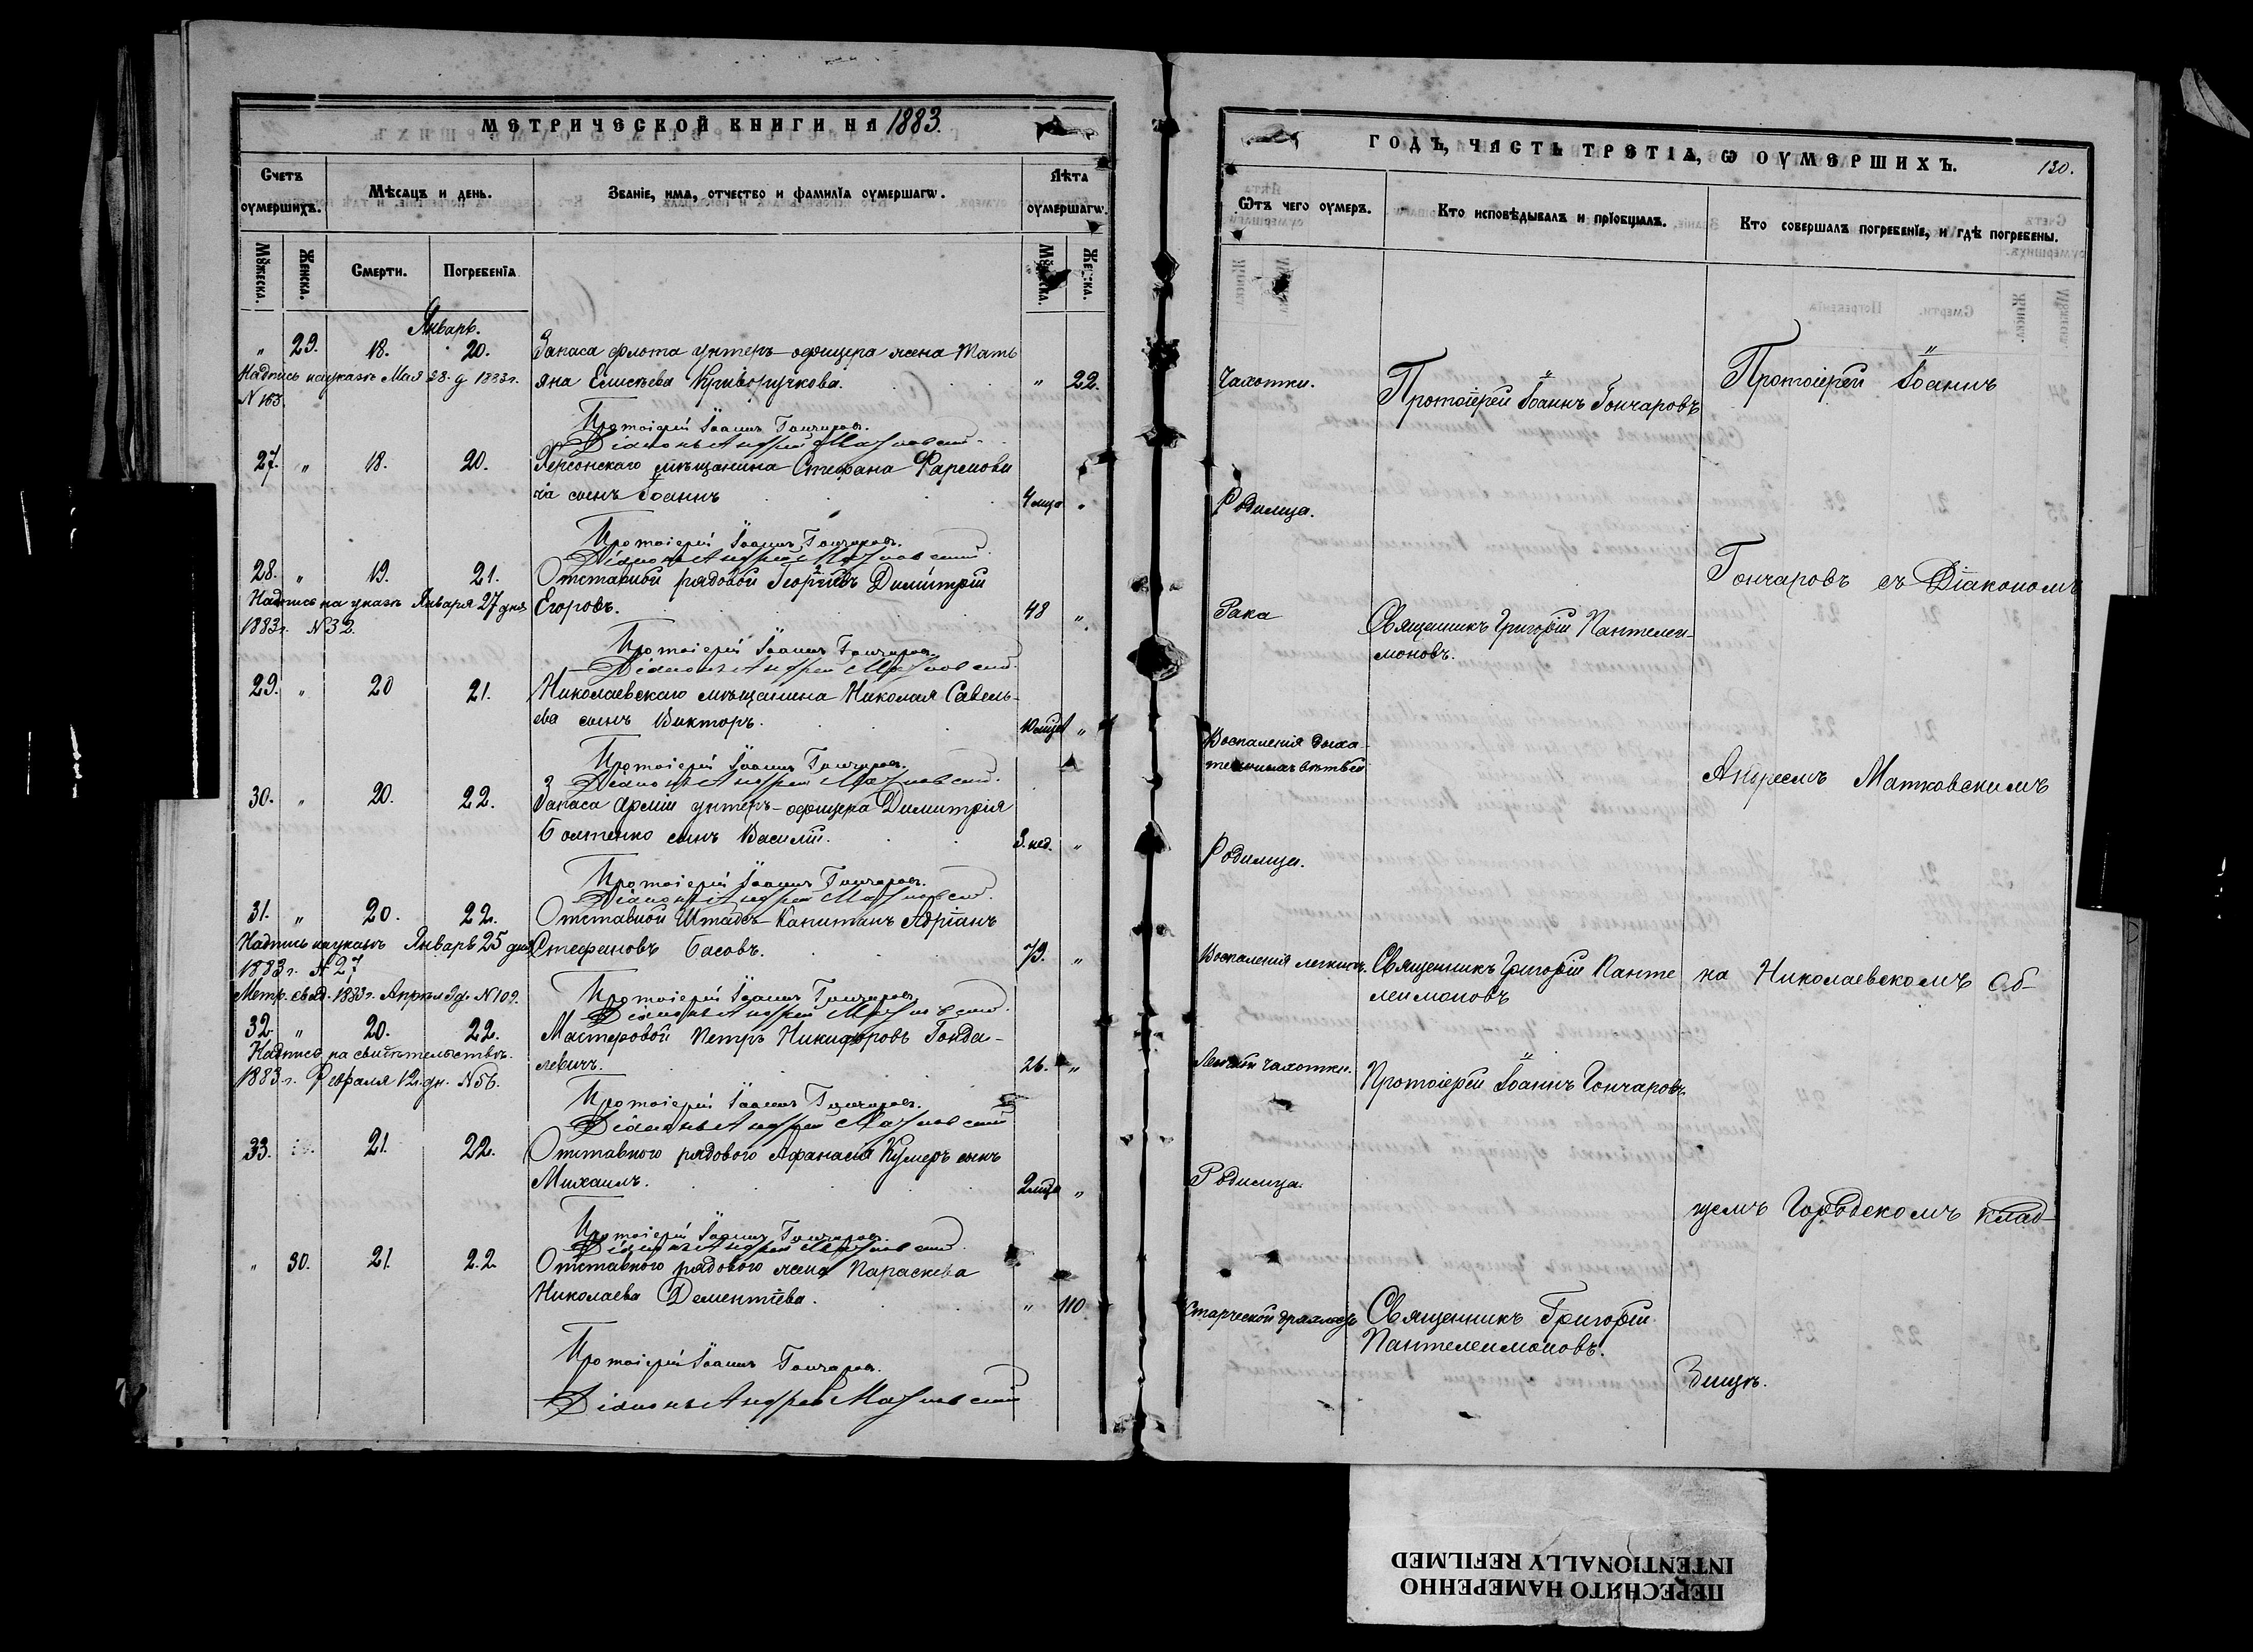 МЕТРИЧЕСКОЙ КНИГИ НА 1883.
Счетъ оумершихъ.
Мѣсяцъ и день.
Званіе, имя, отчество и фамилія оумершагѡ.
Лѣта оумершагѡ.
Мꙋжеска. Женска. Смерти. Погребенія Женска.
Январь.
" 29. 18. 20. Запаса флота унтеръ-офицера жена Тать
Надпись на указѣ Мая 28. д 1883 г. яна Елисѣева Криворучкова. " 22.
N 163.
Протоіерей Іоаннъ Гончаровъ.
Діаконъ Андрей Матковскій
27. " 18. 20. Херсонскаго мѣщанина Стефана
ча сынъ Іоаннъ 4 мца "
Протоіерей Іоаннъ Гончаровъ.
Діаконъ Андрей Матковскій
28. " 19. 21. Отставной рядовой Димитрій
Надпись на указѣ Января 27 дня Егоровъ. 48 "
1883 г. N 32.
Протоіерей Іоаннъ Гончаровъ.
Діаконъ Андрей Матковскій
29. " 20 21. Николаевскаго мѣщанина Николая Савель-
ева сынъ Викторъ. "
Протоіерей Іоаннъ Гончаровъ.
Діаконъ Андрей Матковскій
30. " 20. 22. Запаса арміи унтеръ-офицера Димитрія
Болтенко сынъ Василій. 3. нед. "
Протоіерей Іоаннъ Гончаровъ.
Діаконъ Андрей Матковскій
31. " 20. 22. Отставной Штабсъ-Капитанъ Адріанъ
Надпись на указѣ Январь 25 дня Стефановъ Басовъ. 79. "
1883 г. N 27
Метр. свид. 1883 г. Апрѣл 9 д. N 109.
Протоіерей Іоаннъ Гончаровъ
Діаконъ Андрей Матковскій
32 " 20. 22. Мастеровой Петръ Никифоровъ Гонда-
Надпись на свидѣтельствѣ. левичъ. 26. "
1883 г. Февраля 12 дн. N 56.
Протоіерей Іоаннъ Гончаровъ.
Діаконъ Андрей Матковскій
33. 21. 22. Отставного рядового Афанасія Кумеръ сынъ
Михаилъ. 2 мца "
Протоіерей Іоаннъ Гончаровъ.
Діаконъ Андрей Матковскій
" 30. 21. 22. Отставного рядового жена Параскева
Николаева Дементіева. " 110
Протоіерей Іоаннъ Гончаровъ.
Діаконъ Андрей Матковскій
ГОДЪ, ЧАСТЬ ТРЕТІЯ, Ѡ ОУМЕРШИХЪ. 130.
Ѿтъ чего оумеръ.
Кто исповѣдывалъ и пріобщалъ.
Кто совершалъ погребеніе, и гдѣ погребены.
Чахотки. Протоіерей Іоаннъ Гончаровъ Протоіерей Іоаннъ
Родимца.
Гончаровъ съ Діакономъ
Рака Священникъ Григорій Пантелеи-
моновъ.
Воспаленія дыха-
тельныхъ вѣтвей
Андреемъ Матковскимъ
Родимца.
Воспаленія легкихъ. Священникъ Григорій Панте на Николаевскомъ Об-
леимоновъ
чахотки. Протоіерей Іоаннъ Гончаровъ
Родимца.
щемъ Городскомъ клад-
Старческой дряхлости Священникъ Григорій
Пантелеимоновъ.
бищѣ.
ПЕРЕСНЯТО НАМЕРЕННО
INTENTIONALLY REFILMED